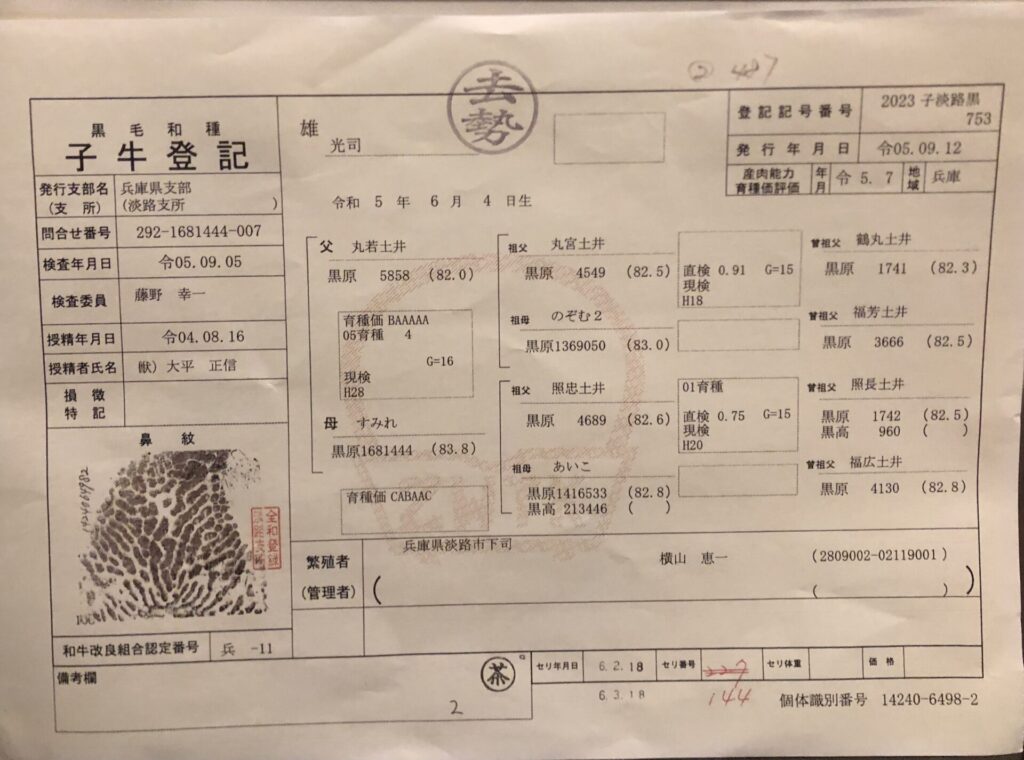 ② 487
黒毛和種
子牛登記
発行支部名 兵庫県支部
(支所) (淡路支所 )
問合せ番号 292-1681444-007
検査年月日 令05.09.05
検査委員 藤野 幸一
授精年月日 令04.08.16
授精者氏名 獣)大平 正信
損徴
特記
鼻紋
和牛改良組合認定番号 兵 -11
雄
光司
去勢
登記記号番号 2023 子淡路黒
753
発行年月日 令05.09.12
産肉能力
育種価評価 年月 令 5. 7 地域 兵庫
令和 5 年 6 月 4 日生
父 丸若土井
黒原 5858 (82.0)
育種価 BAAAAA
05育種 4
G=16
現検
H28
母 すみれ
黒原1681444 (83.8)
育種価 CABAAC
祖父 丸宮土井
黒原 4549 (82.5)
直検 0.91 G=15
現検
H18
祖母 のぞむ2
黒原1369050 (83.0)
祖父 照忠土井
黒原 4689 (82.6)
01育種
直検 0.75 G=15
現検
H20
祖母 あいこ
黒原1416533 (82.8)
黒高 213446 ( )
曽祖父 鶴丸土井
黒原 1741 (82.3)
曽祖父 福芳土井
黒原 3666 (82.5)
曽祖父 照長土井
黒原 1742 (82.5)
黒高 960 ( )
曽祖父 福広土井
黒原 4130 (82.8)
繁殖者 兵庫県淡路市下司
横山 恵一 (2809002-02119001 )
(管理者) ( ( ) )
備考欄
茶
2
セリ年月日 6.2.18 セリ番号 227 セリ体重 価格
6.3.18 144
個体識別番号 14240-6498-2